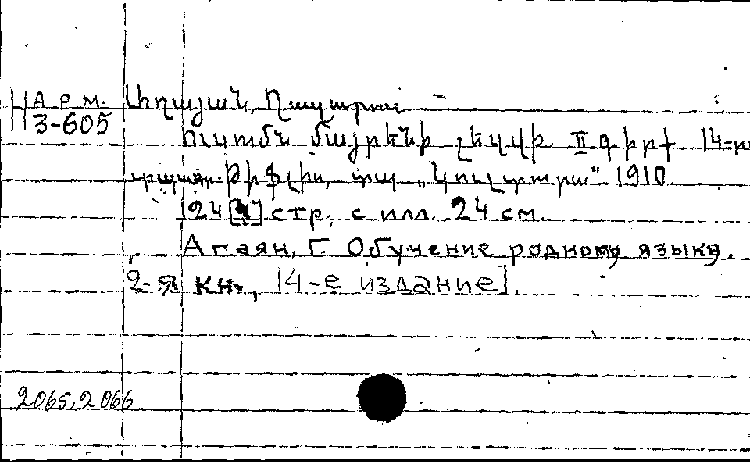 Арм. Աղայան, Ղազարոս
3-605
Ուսումն մայրենի լեզվի II գիրք 14-րդ
տպագր. Թիֆլիս, տպ „Կուլտուրա“ 1910
124 [4] стр. с илл. 24 см.
Агаян, Г. Обучение родному языку.
2-я кн., 14-е издание].
2065, 2066